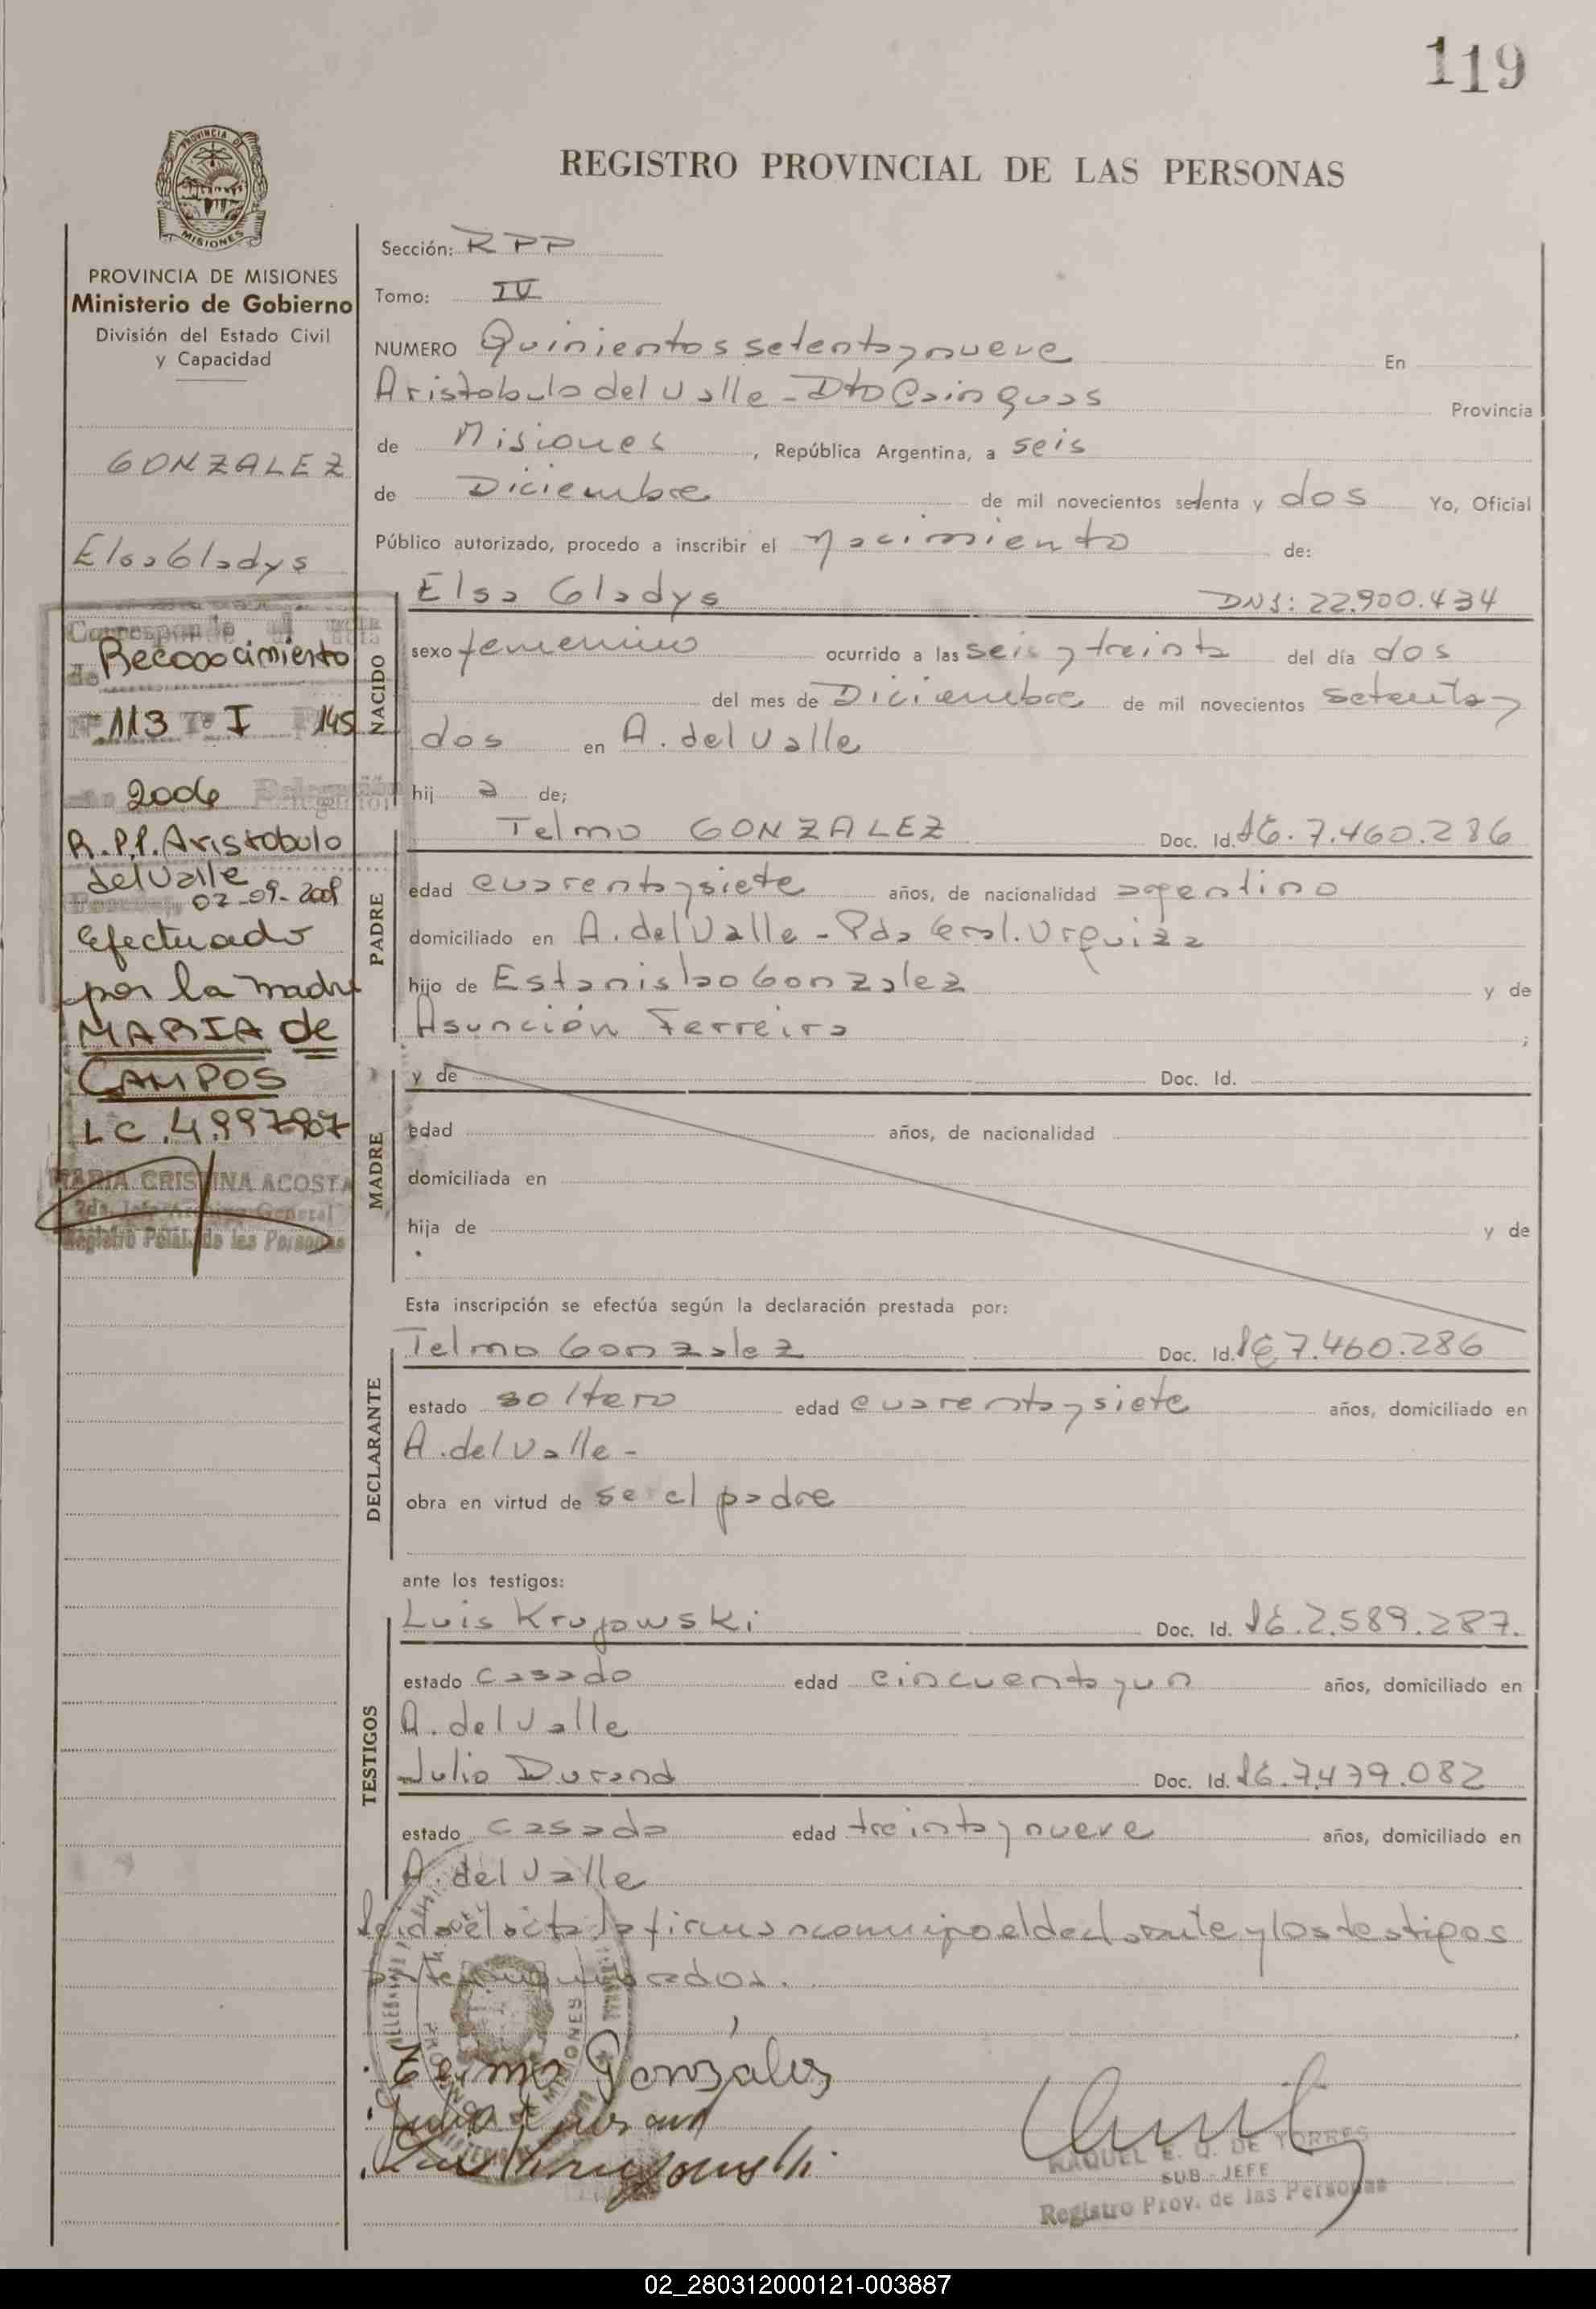 119
REGISTRO PROVINCIAL DE LAS PERSONAS
PROVINCIA DE MISIONES
PROVINCIA DE MISIONES
Ministerio de Gobierno
División del Estado Civil
y Capacidad
GONZALEZ
Elsa Gladys
Corresponde al acta
de Reconocimiento
Nº 113 Tº I F 145
2006 Delegación
R.P.P. Aristobulo
del Valle
02-09-2008
Efectuado
por la madre
MARIA de
CAMPOS
LC. 4.997.907
MARIA CRISTINA ACOSTA
Archivo General
Registro Pcial. de las Personas
Sección: RPP
Tomo: IV
NUMERO Quinientos setenta y nueve En
Aristobulo del Valle - Dto Cainguas Provincia
de Misiones, República Argentina, a seis
de Diciembre de mil novecientos setenta y dos Yo, Oficial
Público autorizado, procedo a inscribir el nacimiento de:
NACIDO
Elsa Gladys DNI: 22.900.434
sexo femenino ocurrido a las seis y treinta del día dos
del mes de Diciembre de mil novecientos setenta y
dos en A. del Valle
hij a de;
PADRE
Telmo GONZALEZ Doc. Id. 7.460.286
edad cuarenta y siete años, de nacionalidad argentino
domiciliado en A. del Valle - Pda Gral. Urquiza
hijo de Estanislao Gonzalez y de
Asunción Ferreira ;
MADRE
y de Doc. Id.
edad años, de nacionalidad
domiciliada en
hija de y de
Esta inscripción se efectúa según la declaración prestada por:
DECLARANTE
Telmo Gonzalez Doc. Id. 7.460.286
estado soltero edad cuarenta y siete años, domiciliado en
A. del Valle -
obra en virtud de ser el padre
ante los testigos:
TESTIGOS
Luis Krujowski Doc. Id. 2.589.287.
estado casado edad cincuenta y un años, domiciliado en
A. del Valle
Julio Durand Doc. Id. 7.479.082
estado casado edad treinta y nueve años, domiciliado en
A. del Valle
Leida el acta la firman conmigo el declarante y los testigos
Telmo González
RAQUEL E. Q. DE TORRES
SUB - JEFE
Registro Prov. de las Personas
02_280312000121-003887